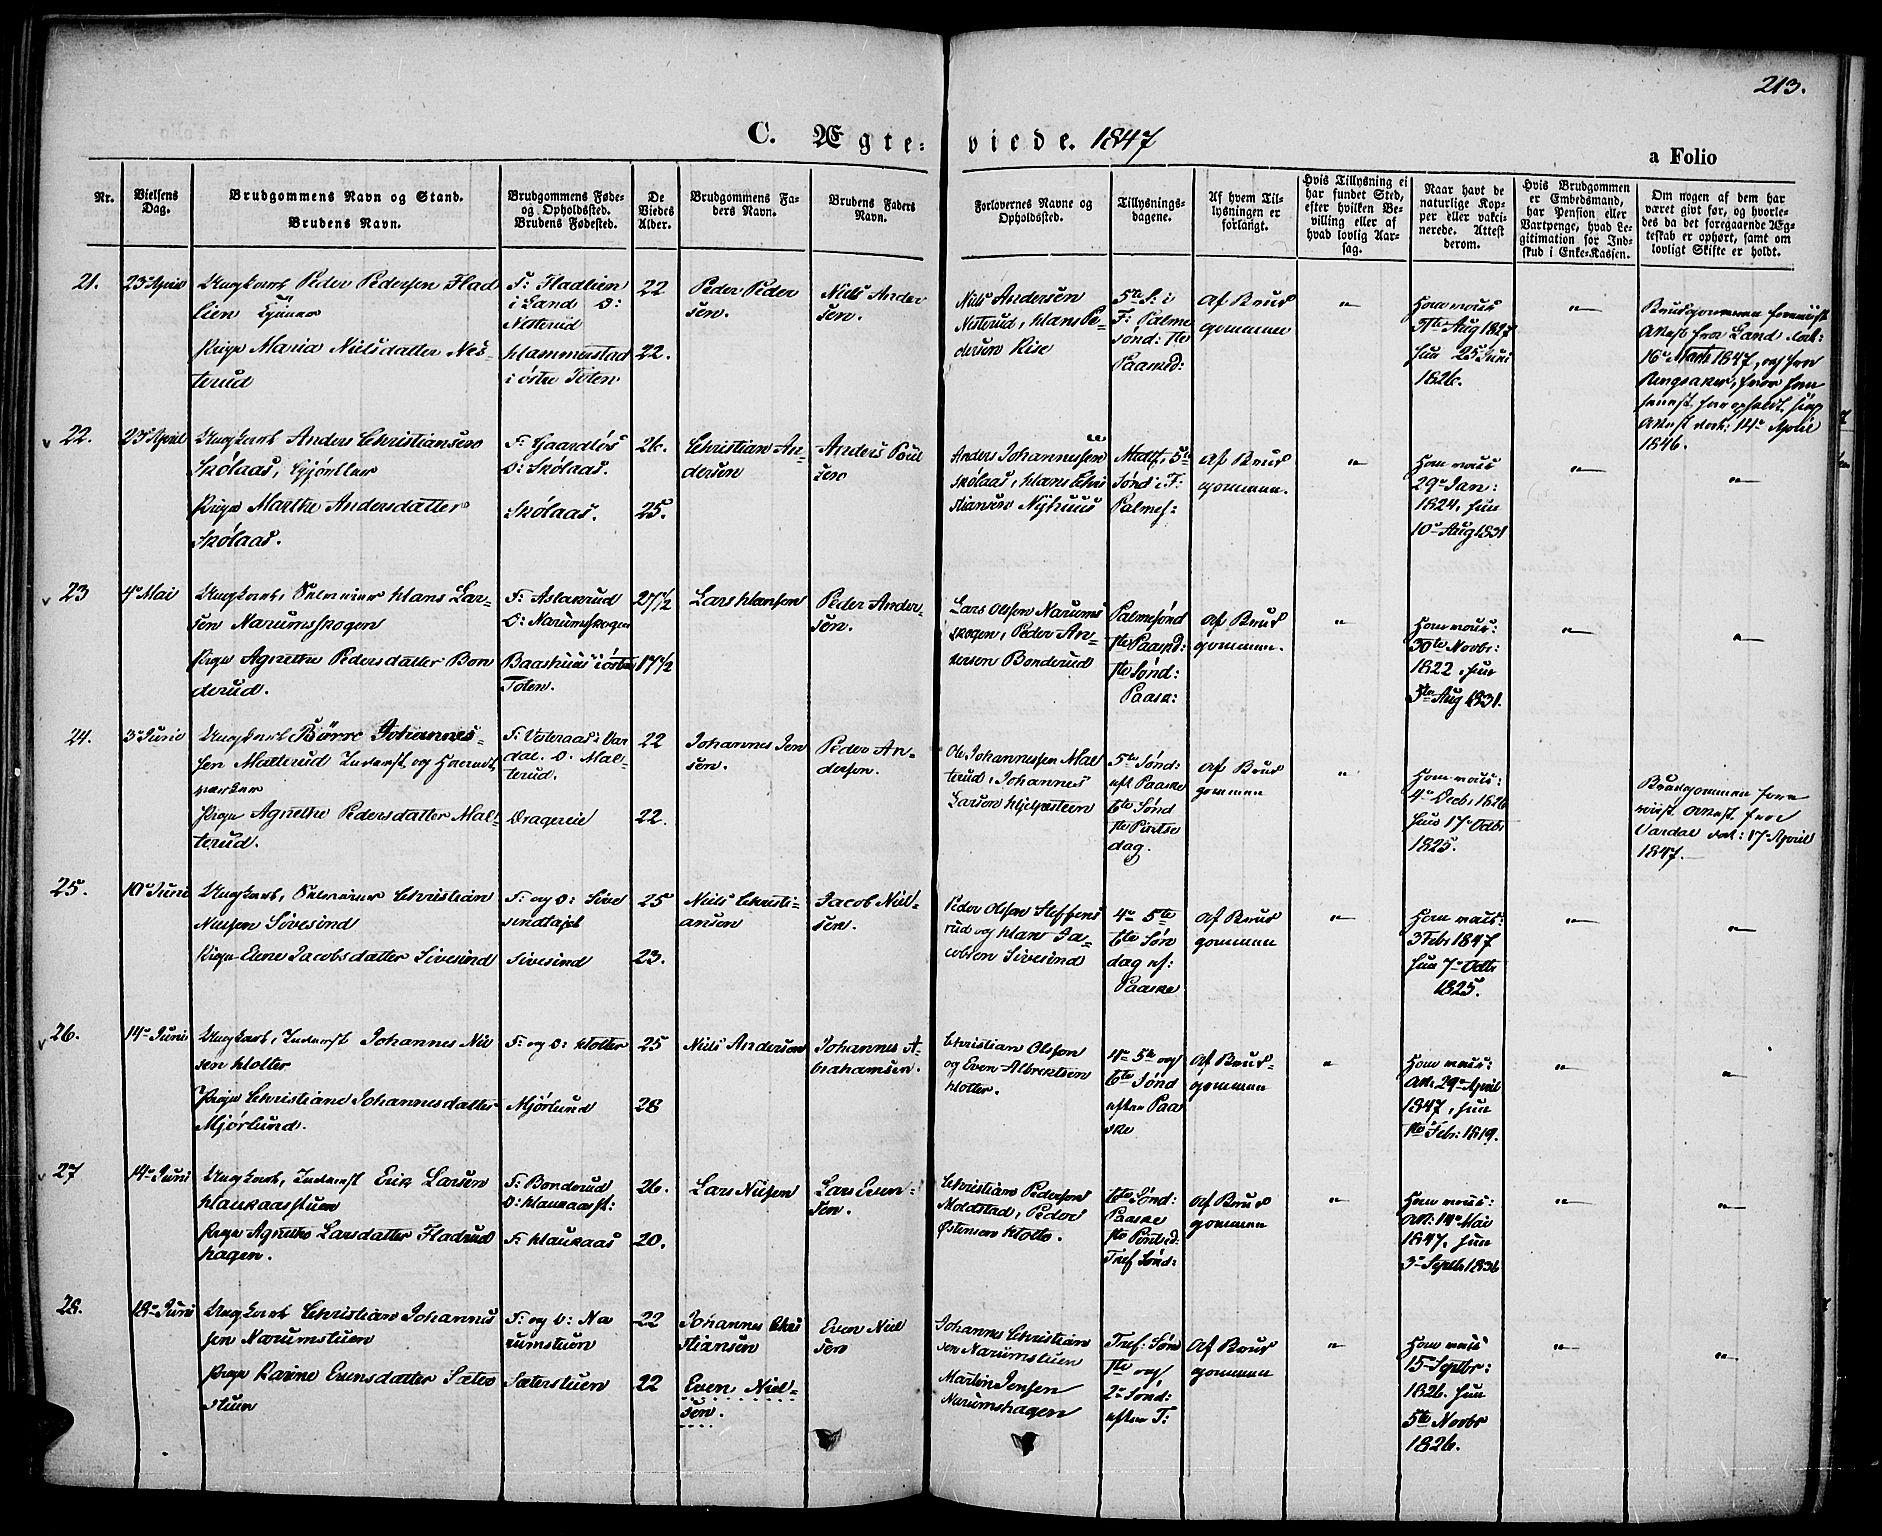 213.
C. Ægte-viede. 1847
a Folio
Nr.
Vielsens Dag.
Brudgommens Navn og Stand.
Brudens Navn.
Brudgommens Føde-
og Opholdssted.
Brudens Fødested.
De
Viedes
Alder.
Brudgommens Fa-
ders Navn.
Brudens Faders
Navn.
Forlovernes Navne og
Opholdssted.
Tillysnings-
dagene.
Af hvem Til-
lysningen er
forlangt.
Hvis Tillysning ei
har fundet Sted,
efter hvilken Be-
villing eller af
hvad lovlig Aar-
sag.
Naar havt de
naturlige Kop-
per eller vakci-
nerede. Attest
derom.
Hvis Brudgommen
er Embedsmand,
har Pension eller
Vartpenge, hvad Le-
gitimation for Ind-
skud i Enke-Kassen.
Om nogen af dem har
været givt før, og hvorle-
des da det foregaaende Æg-
teskab er ophørt, samt om
lovligt Skifte er holdt.
21.
23 April
Ungkarl Peder Pedersen Flad
lien
Pige Maria Nielsdatter Nes-
terud
F: Fladlien
i Land O:
Nesterud
Hammerstad
i østre Toten
22
22.
Peder Peder
sen.
Niels Ander
sen.
Niels Andersen
Nesterud, Hans Pe-
dersen Rise
5te S: i
F: Palme
sønd: 1te
Paasked:
Af Brud
gommen
"
Ham vacc:
Aug 1827
hun 25 Juni
1826.
"
Brudgommen foreviist
Attest fra Land dat:
16 Marts 1847, og fra
Ringsaker, hvor han
senest har opholdt sig
Attest dat: 14 April
1846.
22.
23 April
Ungkarl Anders Christiansen
Skølaas,
Pige Marthe Andersdatter
Skølaas.
F: Gaardløs
O: Skølaas.
Skølaas.
26.
25.
Christian An-
dersen
Anders Poul
sen
Anders Johannesen
Skølaas, Hans Chri
stiansen Nyhuus
5te
Sønd: i F:
Palmes:
Af Brud
gommen.
"
Ham vacc:
29 Jan:
1824, hun
10 Aug 1831
"
"
23
4 Mai
Ungkarl, Selveier Hans Lar-
sen Narumsskogen
Pige Agnethe Pedersdatter Bon
derud.
F: Aslakrud
O: Narumskogen
Baashuus i østre
Toten.
27 1/2
17 1/2
Lars Hansen
Peder Ander-
sen.
Lars Olsen Narums
skogen, Peder An-
dersen Bonderud
Palmesønd
1te Paasked:
1te Sønd:
Paaske:
Af Brud
gommen.
"
Ham vacc:
30te Novbr:
1822, hun
Aug 1831.
"
"
24.
3 Juni
Ungkarl Børre Johannes-
sen Malterud Inderst og Haandt
værker
Pige Agnethe Pedersdatter Mal-
terud.
F: Vesteraas i Var
dal. O: Mal-
terud.
Drageeie
22
22.
Johannes Jen
sen.
Peder An-
dersen.
Ole Johannessen Mal
terud, Johannes
Larsen Hjelpesteen
5te Sønd:
eft Paaske
6te Sønd
1te Pintse
dag.
Af Brud
gommen
"
Ham vacc:
4 Decb: 1826
hun 17 Octbr
1825.
Brudgommen fore
viist Attest fra
Vardal dat: 17 April
1847.
25.
10 Juni
Ungkarl, Selveier Christian
Nielsen Sivesind
Pige Elene Jacobsdatter Sivesind
F: og O: Sive
sindtajet
Sivesind
25
23.
Niels Christi-
ansen
Jacob Niel-
sen.
Peder Olsen Steffens
rud og Hans Ja-
cobsen Sivesind
4 5te
6te Søn
dag ef:
Paaske
Af Brud
gommen
"
Ham vacc:
3 Febr 1847
hun 7 Octbr
1825.
"
"
26.
14 Juni
Ungkarl, Inderst Johannes Niel
sen Klotter
Pige Christiane Johannesdatter
Mjørlund.
F: og O: Klotter
Mjørlund
25
28
Niels Andersen
Johannes A-
brahamsen.
Christian Olsen
og Even Albrektsen
Klotter.
4 5te og
6te Sønd
efter Paa
ske
Af Brud-
gommen
"
Ham vacc:
Att: 29 April
1847, hun
1te Febr: 1819.
"
"
27
14 Juni
Ungkarl, Inderst Erik Larsen
Haukaasstuen
Pige Agnethe Larsdatter Fladrud
hagen.
F: Bonderud
O: Haukaasst:
F: Haukaas
26.
20.
Lars Nielsen
Lars Even-
sen.
Christian Pedersen
Moldstad, Peder
Østensen Klotte.
6te Sønd:
Paaske
1te Pintsed:
Tref Sønd:
Af Brud
gommen
"
Ham vacc:
Att: 14 Mai
1847, hun
3 Septbr 1836
"
"
28.
18 Juni
Ungkarl Christian Johannes
sen Narumstuen
Pige Karine Evensdatter Sæter
stuen
F: og O: Na
rumstuen
Sæterstuen
22
22
Johannes Chri
stiansen
Even Niel-
sen.
Even Niel
sen
Johannes Christian
sen Narumstuen
Martin Jensen
Narumshagen
Tref: Søn
1te og
2 Sønd:
efter T:
Af Brud
gommen
"
Ham vacc:
15 Septbr:
1826. hun
5te Novbr
1826.
"
"